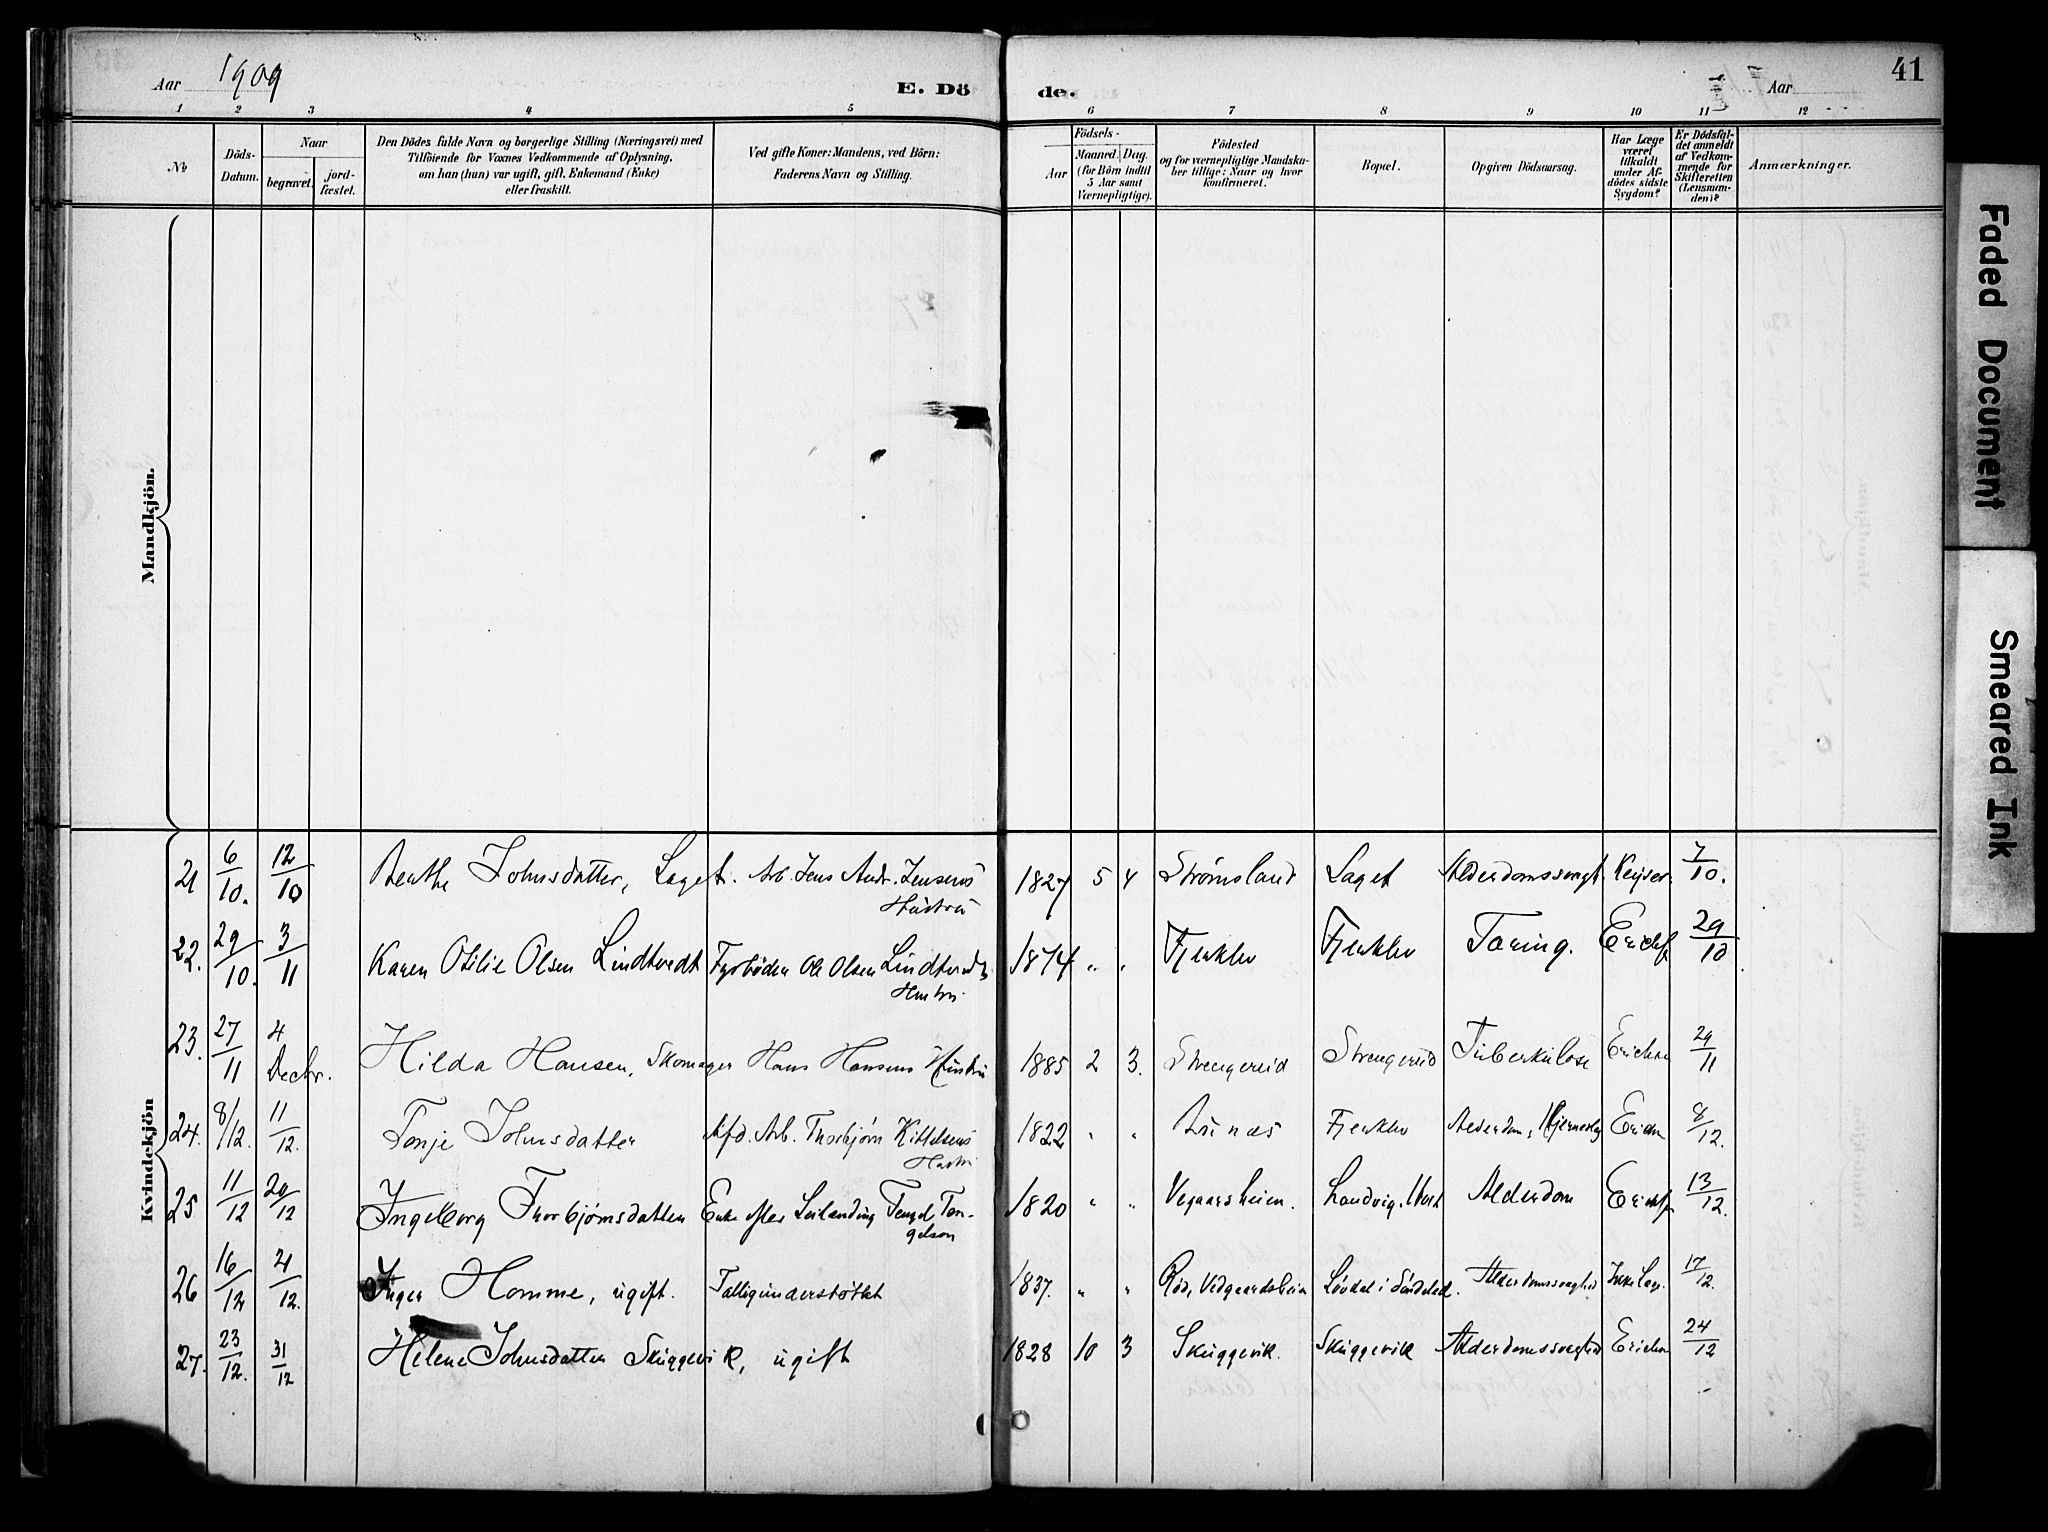 Aar 1909 E. Dö de. Aar 41
1 2 3 4 5 6 7 8 9 10 11 12
No
Döds-Datum.
Naar
begravet. jordfæstet.
Den Dödes fulde Navn og borgerlige Stilling (Næringsvei) med
Tilföiende for Voxnes Vedkommende af Oplysning,
om han (hun) var ugift, gift, Enkemand (Enke)
eller fraskilt.
Ved gifte Koner: Mandens, ved Börn:
Faderens Navn og Stilling.
Födsels-
Aar Maaned. Dag.
(for Börn indtil
5 Aar samt
Værnepligtige).
Födested
og for værnepligtige Mandskaber tillige: Naar og hvor
konfirmeret.
Bopæl.
Opgiven Dödsaarsag.
Har Læge
været
tilkaldt
under Afdödes sidste
Sygdom?
Er Dödsfaldet anmeldt
af Vedkommende for
Skifteretten
(Lensmanden)?
Anmærkninger.
Mandkjön.
Kvindekjön
21 6/10. 12/10 Benthe Johnsdatter, Laget. Arb. Jens Andr. Jensens Hustru 1827 5 4 Strømsland Laget Alderdomssvagh. Keyser. 7/10.
22. 29/10. 3/11 Karen Otilie Olsen Lindtvedt Fyrbøder Ole Olsen Lindtvedts Hustru. 1874 " " Fjerklev Fjerklev Tæring. 29/10.
23. 27/11 4 Decbr. Hilda Hansen, Skomager Hans Hansens Hustru 1885 2 3. Strengereid Strengereid Tuberkulose 29/11
24. 8/12. 11/12. Tonje Johnsdatter Afd. Arb. Thorbjørn Kittelsens Hustru 1822 " " Fjerklev Alderdom, 8/12.
25 11/12 20/12 Ingeborg Thorbjørnsdatter Enke efter Leilænding Tengel Tengelsen 1820 " " Vegaarsheien. Landvig, Alderdom 13/12.
26 16/12 21/12. Inger Homme, ugift. Fattigunderstøttet 1837. " " Rød, Vedgaardsheien Løvdal i Søndeled. Alderdomssvaghed Ikke Læge 17/12.
27. 23/12. 31/12 Helene Johnsdatter Skuggevik, ugift 1828 10 3 Skuggevik. Skuggevik Alderdomssvaghed 24/12
Faded Document
Smeared Ink